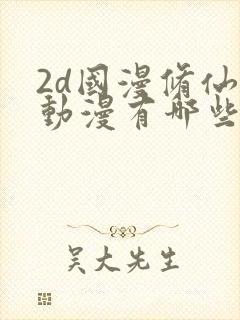 2d國漫脩仙
動漫有哪些
吴大先生